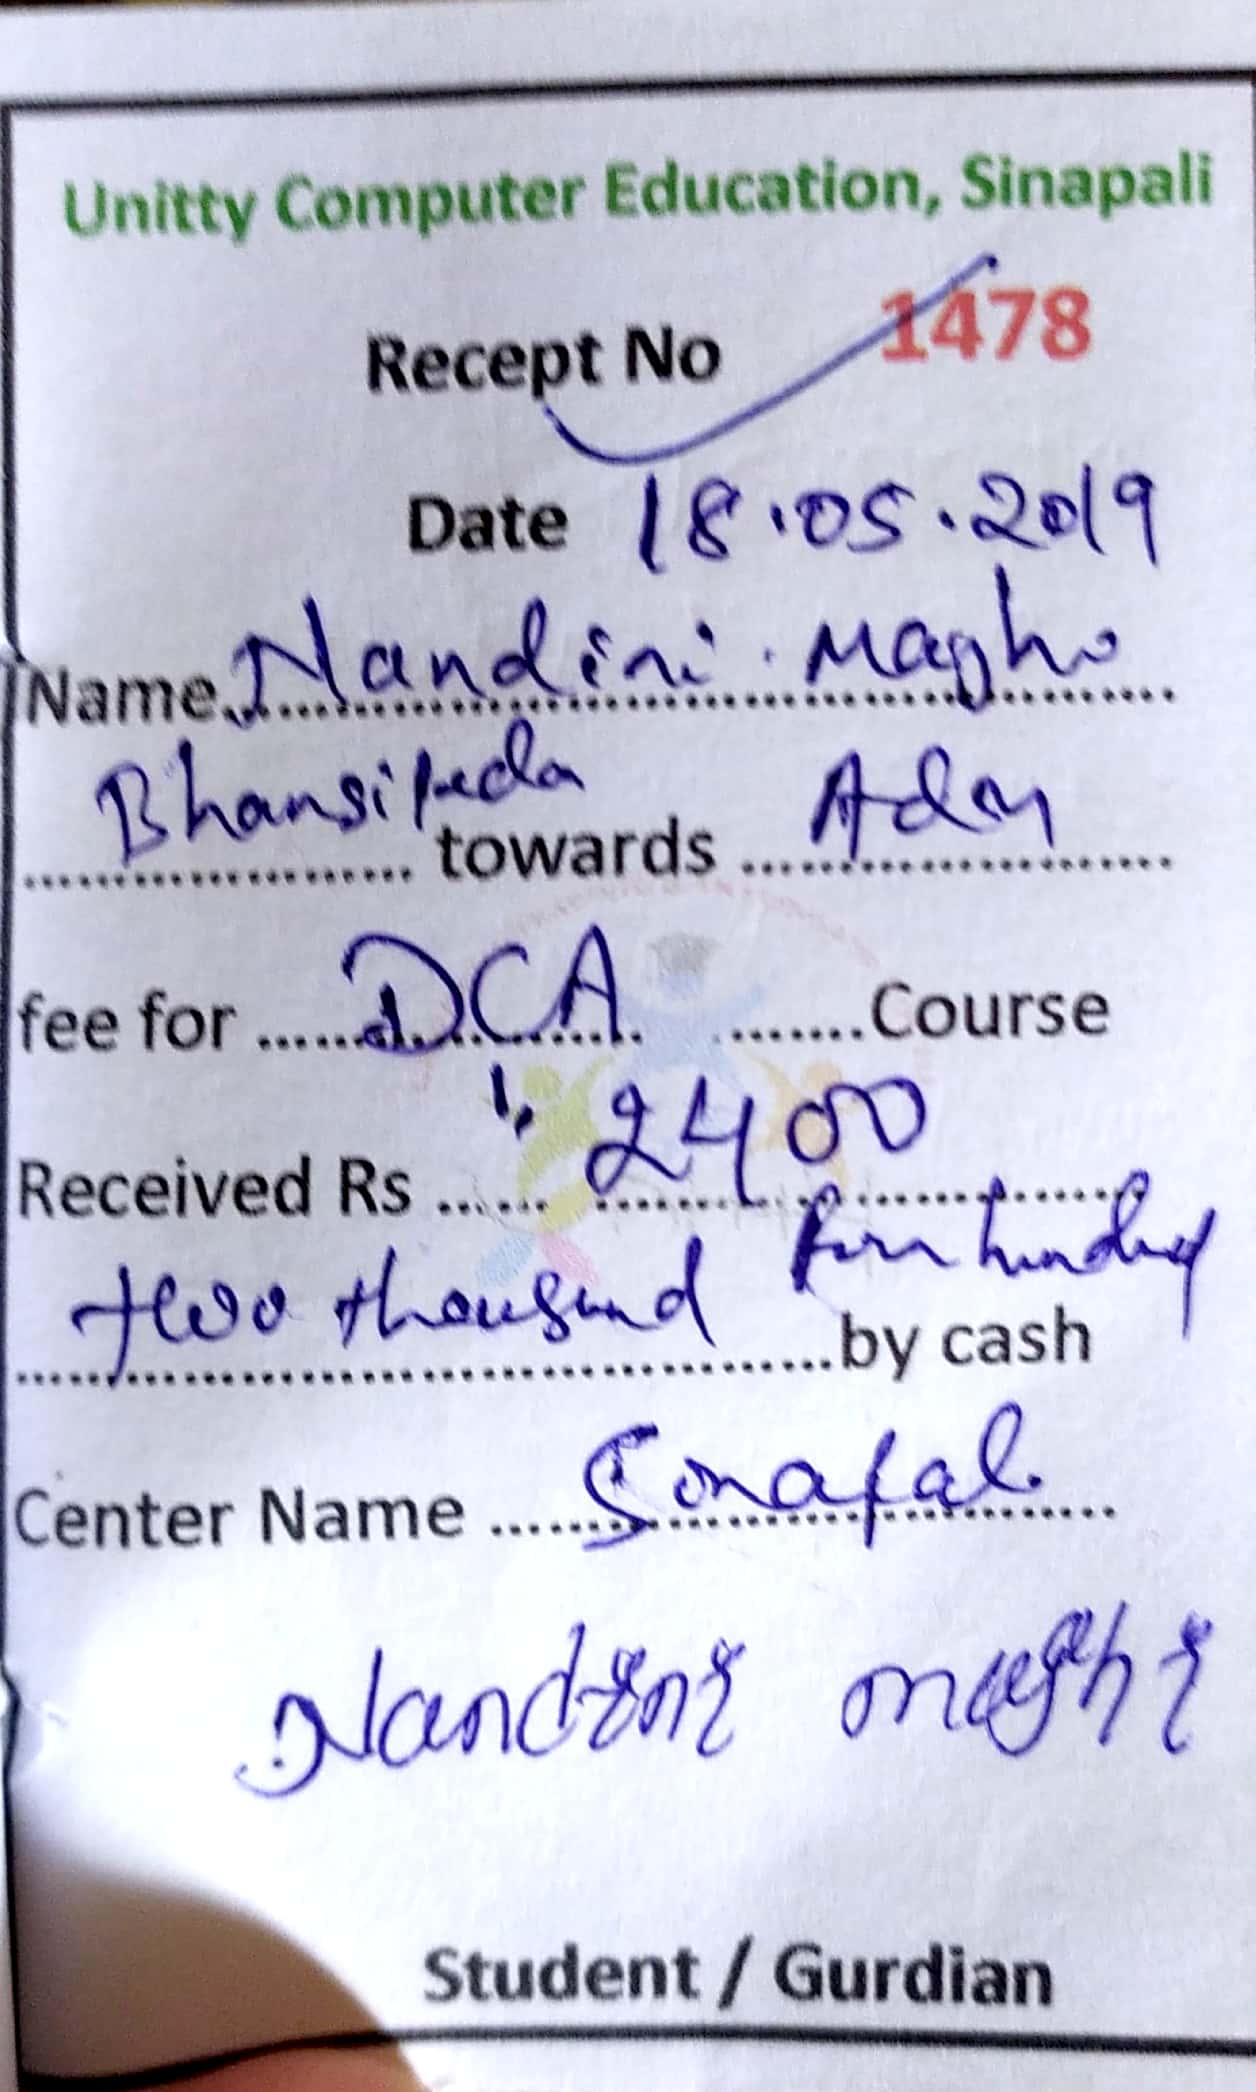 Unitty Computer Education, Sinapali
Recept No 1478
Date 18.05.2019
Name Nandini Magho
Bhansipeda towards Adm
fee for DCA Course
Received Rs 2400
two thousand four hundred by cash
Center Name
Nandini maghi
Student / Gurdian